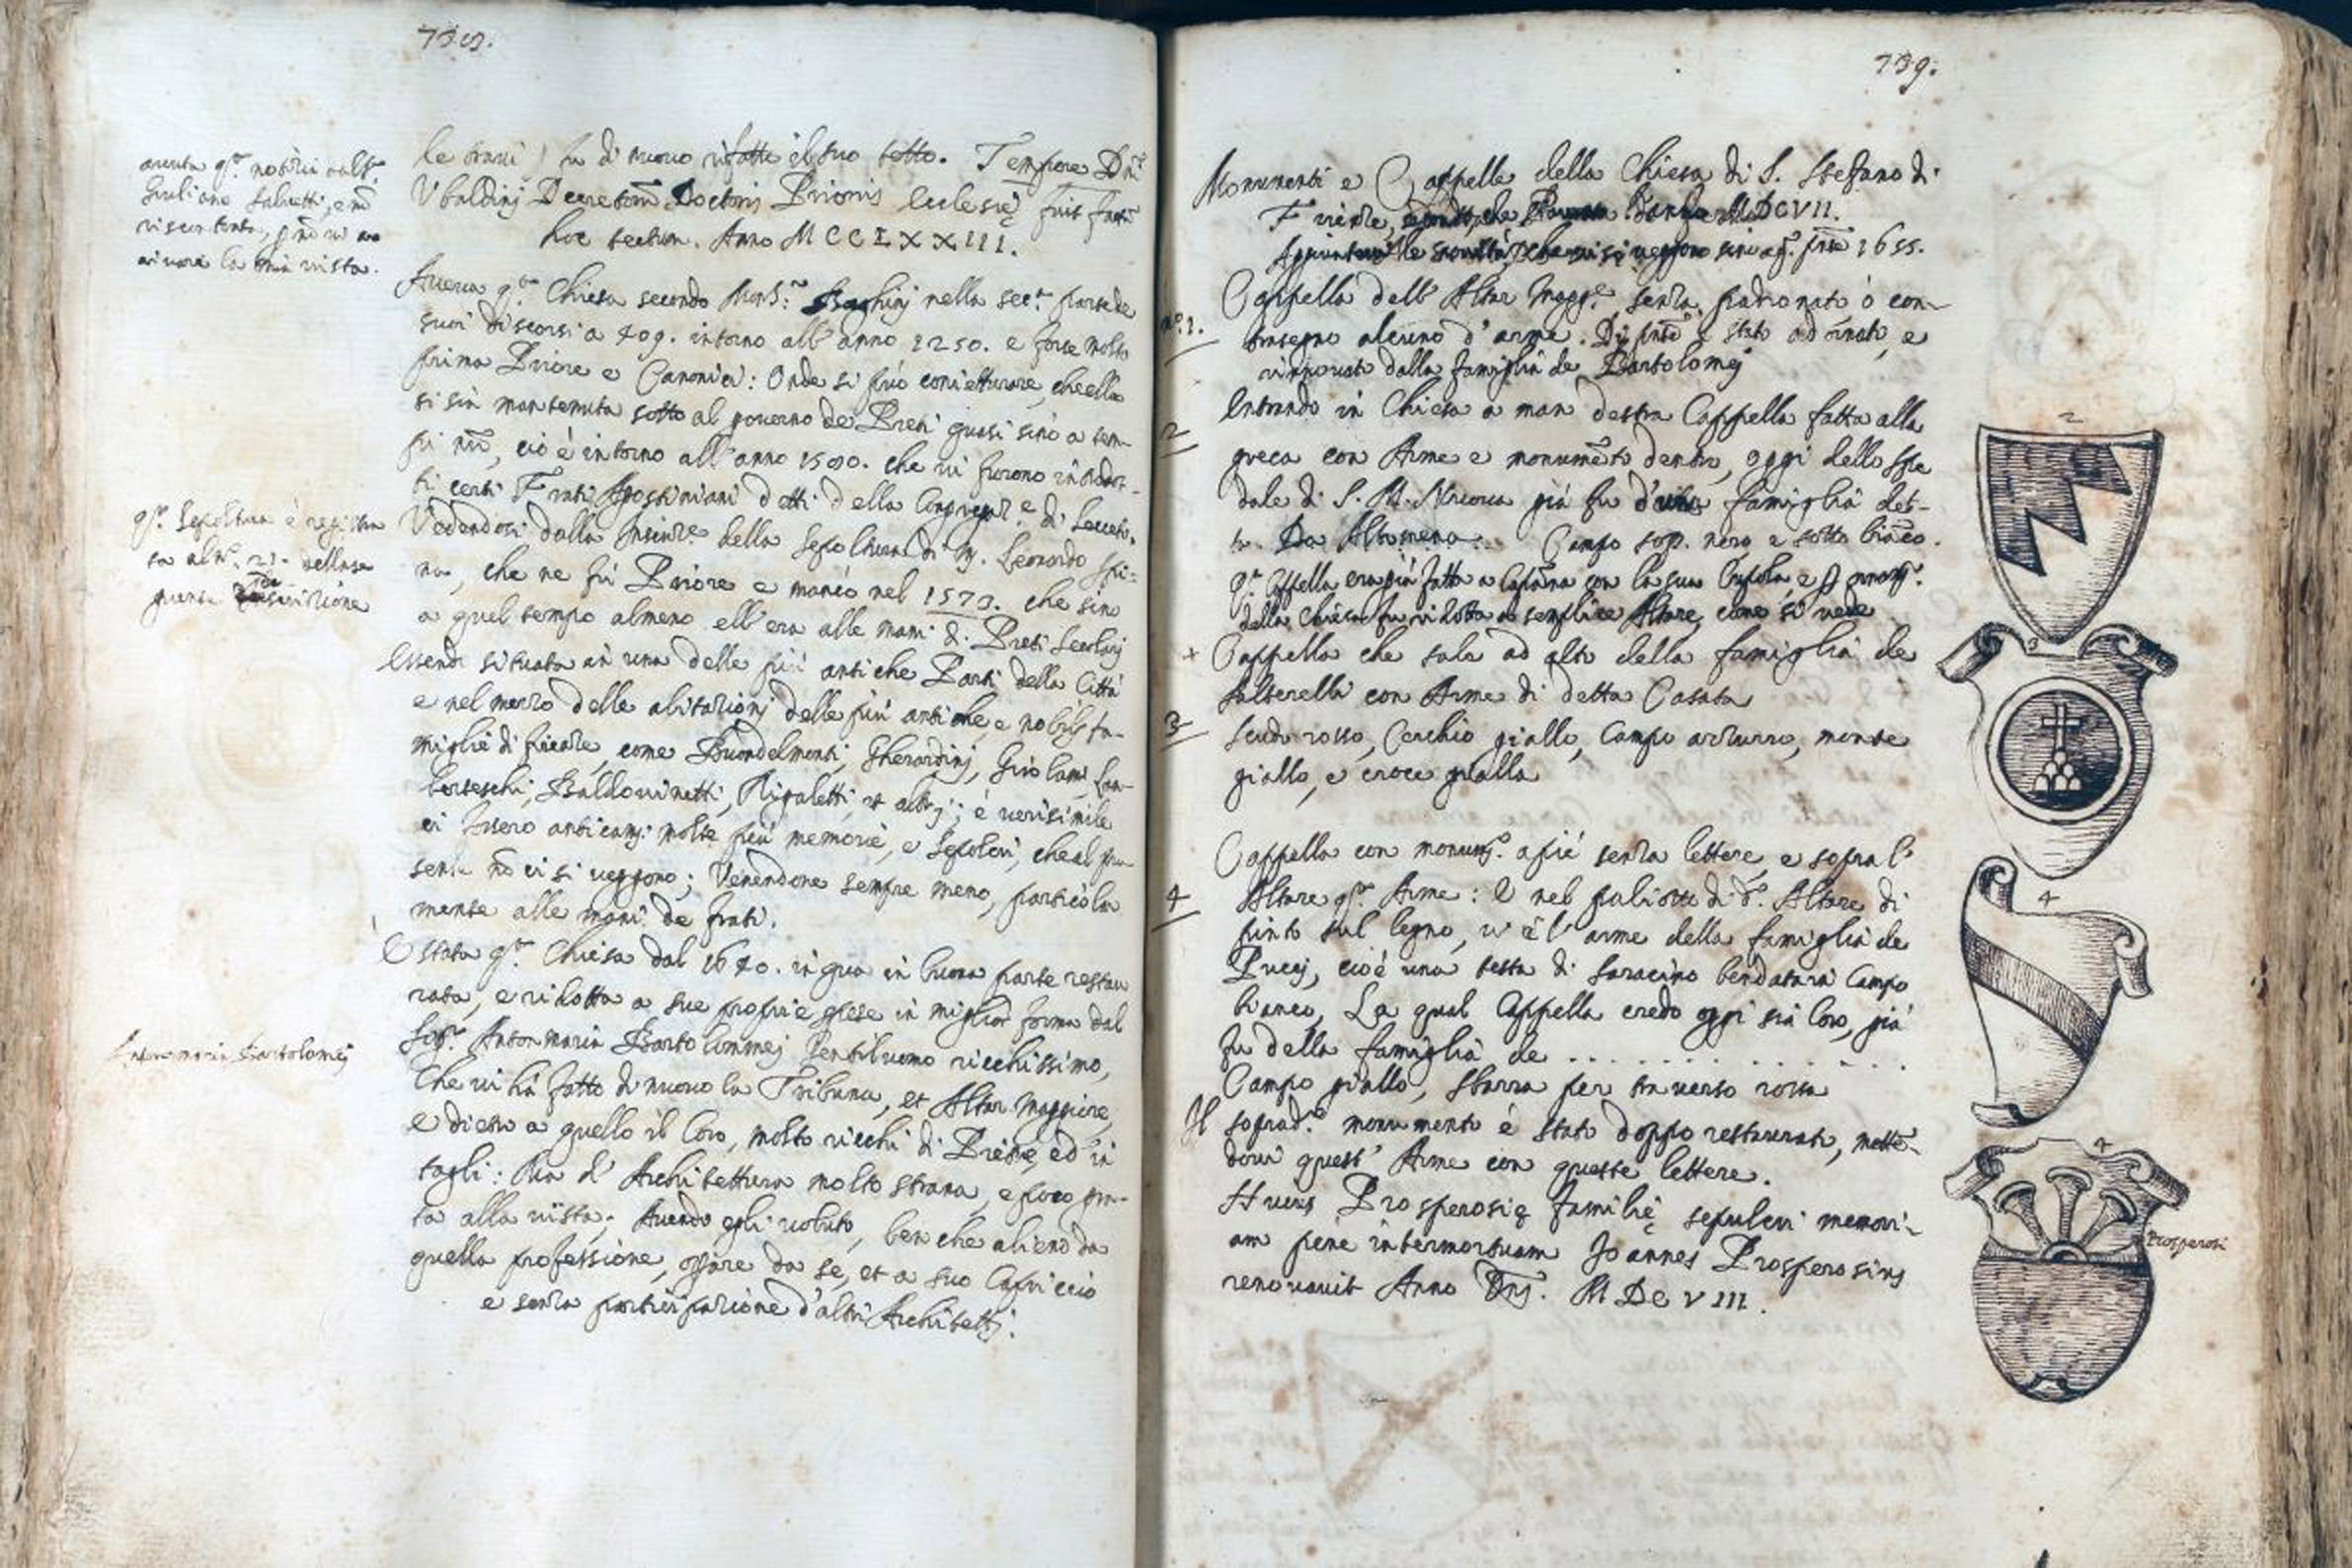 738.
avuta q.ta notizia dall
Giuliano Salvetti, e nō
riscontrata, p nō vi
arrivare la mia vista.
le travi) fu di nuovo rifatto il suo tetto. Tempore Dnī
Ubaldinj Decretorū Doctoris Prioris Ecclesię fuit factū
hoc tectum. Anno MCCLXXIII.
Aveva q.ta Chiesa secondo Mons.re Borghinj nella sec.da parte de
suoi discorsi a 409. intorno all'anno 1250. e forse molto
prima Priore e Canonici: Onde si può conietturare, che ella
si sia mantenuta sotto al governo de Preti quasi sino a tem-
pi nrī, cio è intorno all'anno 1590. che vi furono introdot-
ti certi Frati Agostiniani detti della Congregaz.e di Lecceto.
q.ta Sepoltura è registra
ta al n.o 21. della se
guente
Vedendosi dalla Inscrize della Sepoltura di M. Leonardo Spi-
na, che ne fu Priore e mancò nel 1573. che sino
a quel tempo almeno ell'era alle mani di Preti Secolarj
Essendo situata in una delle più antiche Parti della Città
e nel mezzo delle abitazionj delle più antiche, e nobili fa-
miglie di firenze, come Buondelmonti, Gherardinj, Girolami, Lam-
berteschi, Baldovinetti, Rigaletti, et altrj; è verisimile
ci fussero anticamẽ: molte più memorie, e Sepolcri, che al pre-
sente nō ci si veggono; Venendone sempre meno, particolar
mente alle mani de frati.
È stata q.ta Chiesa dal 1640. in qua in buona parte restau
rata, e ridotta a sue proprie spese in miglior forma dal
Antonmaria Bartolomej
Sig.re Antonmaria Bartolommej Gentiluomo ricchissimo,
Che vi hà fatto di nuovo la Tribuna, et Altar Maggiore,
e dietro a quello il Coro, molto ricchi di Pietre, ed in
tagli: Ma d'Architettura molto strana, e poco gra-
ta alla vista; Avendo egli voluto, ben che alieno da
quella professione, oprare da se, et a suo Capriccio
e senza participazione d'altri Architettj.
739.
Monumenti e Cappelle della Chiesa di S. Stefano di
Firenze, MDCVII.
le si veggono sino a q. pnte 1655.
n.o 1. Cappella dell'Altar Magg.re senza padronato ò con-
trasegno alcuno d'arme. Di pntē è stato adornato, e
rinnovato dalla famiglia de Bartolomej
2 Entrando in Chiesa a man destra Cappella fatta alla
greca con Arme e monumēto dentro, oggi dello Spe
dale di S. M. Nuova già fu d'una famiglia det-
ta Da Altomena. Campo sop. nero e sotto biāco.
q.ta Cappella era già fatta a Capanna con la sua Cupola, e p
della Chiesa fu ridotta a semplice Altare, come si vede
+ Cappella che sale ad alto della famiglia de
Salterelli con Arme di detta Casata
3 Scudo rosso, Cerchio giallo, Campo azzurro, monte
giallo, e croce gialla
Cappella con monumẽ. a piè senza lettere, e sopra l'
4 Altare q.ta Arme: E nel paliotto di d.o Altare di
pinto sul legno, v'è l'arme della famiglia de
Puccj, cioè una testa di Saracino bendata in Campo
bianco, La qual Cappella credo oggi sia loro, già
fu della famiglia de . . . . . . . . . .
Campo giallo, sbarra per traverso rossa
Il soprad.o monumento è stato doppo restaurato, mettē-
dovi quest'Arme con queste lettere.
Huius Prosperosię familię sepulcri memori-
am penè intermortuam Joannes Prosperosius
renovavit Anno Dnj. MDCVIII.
2
3
4
4
Prosperosi